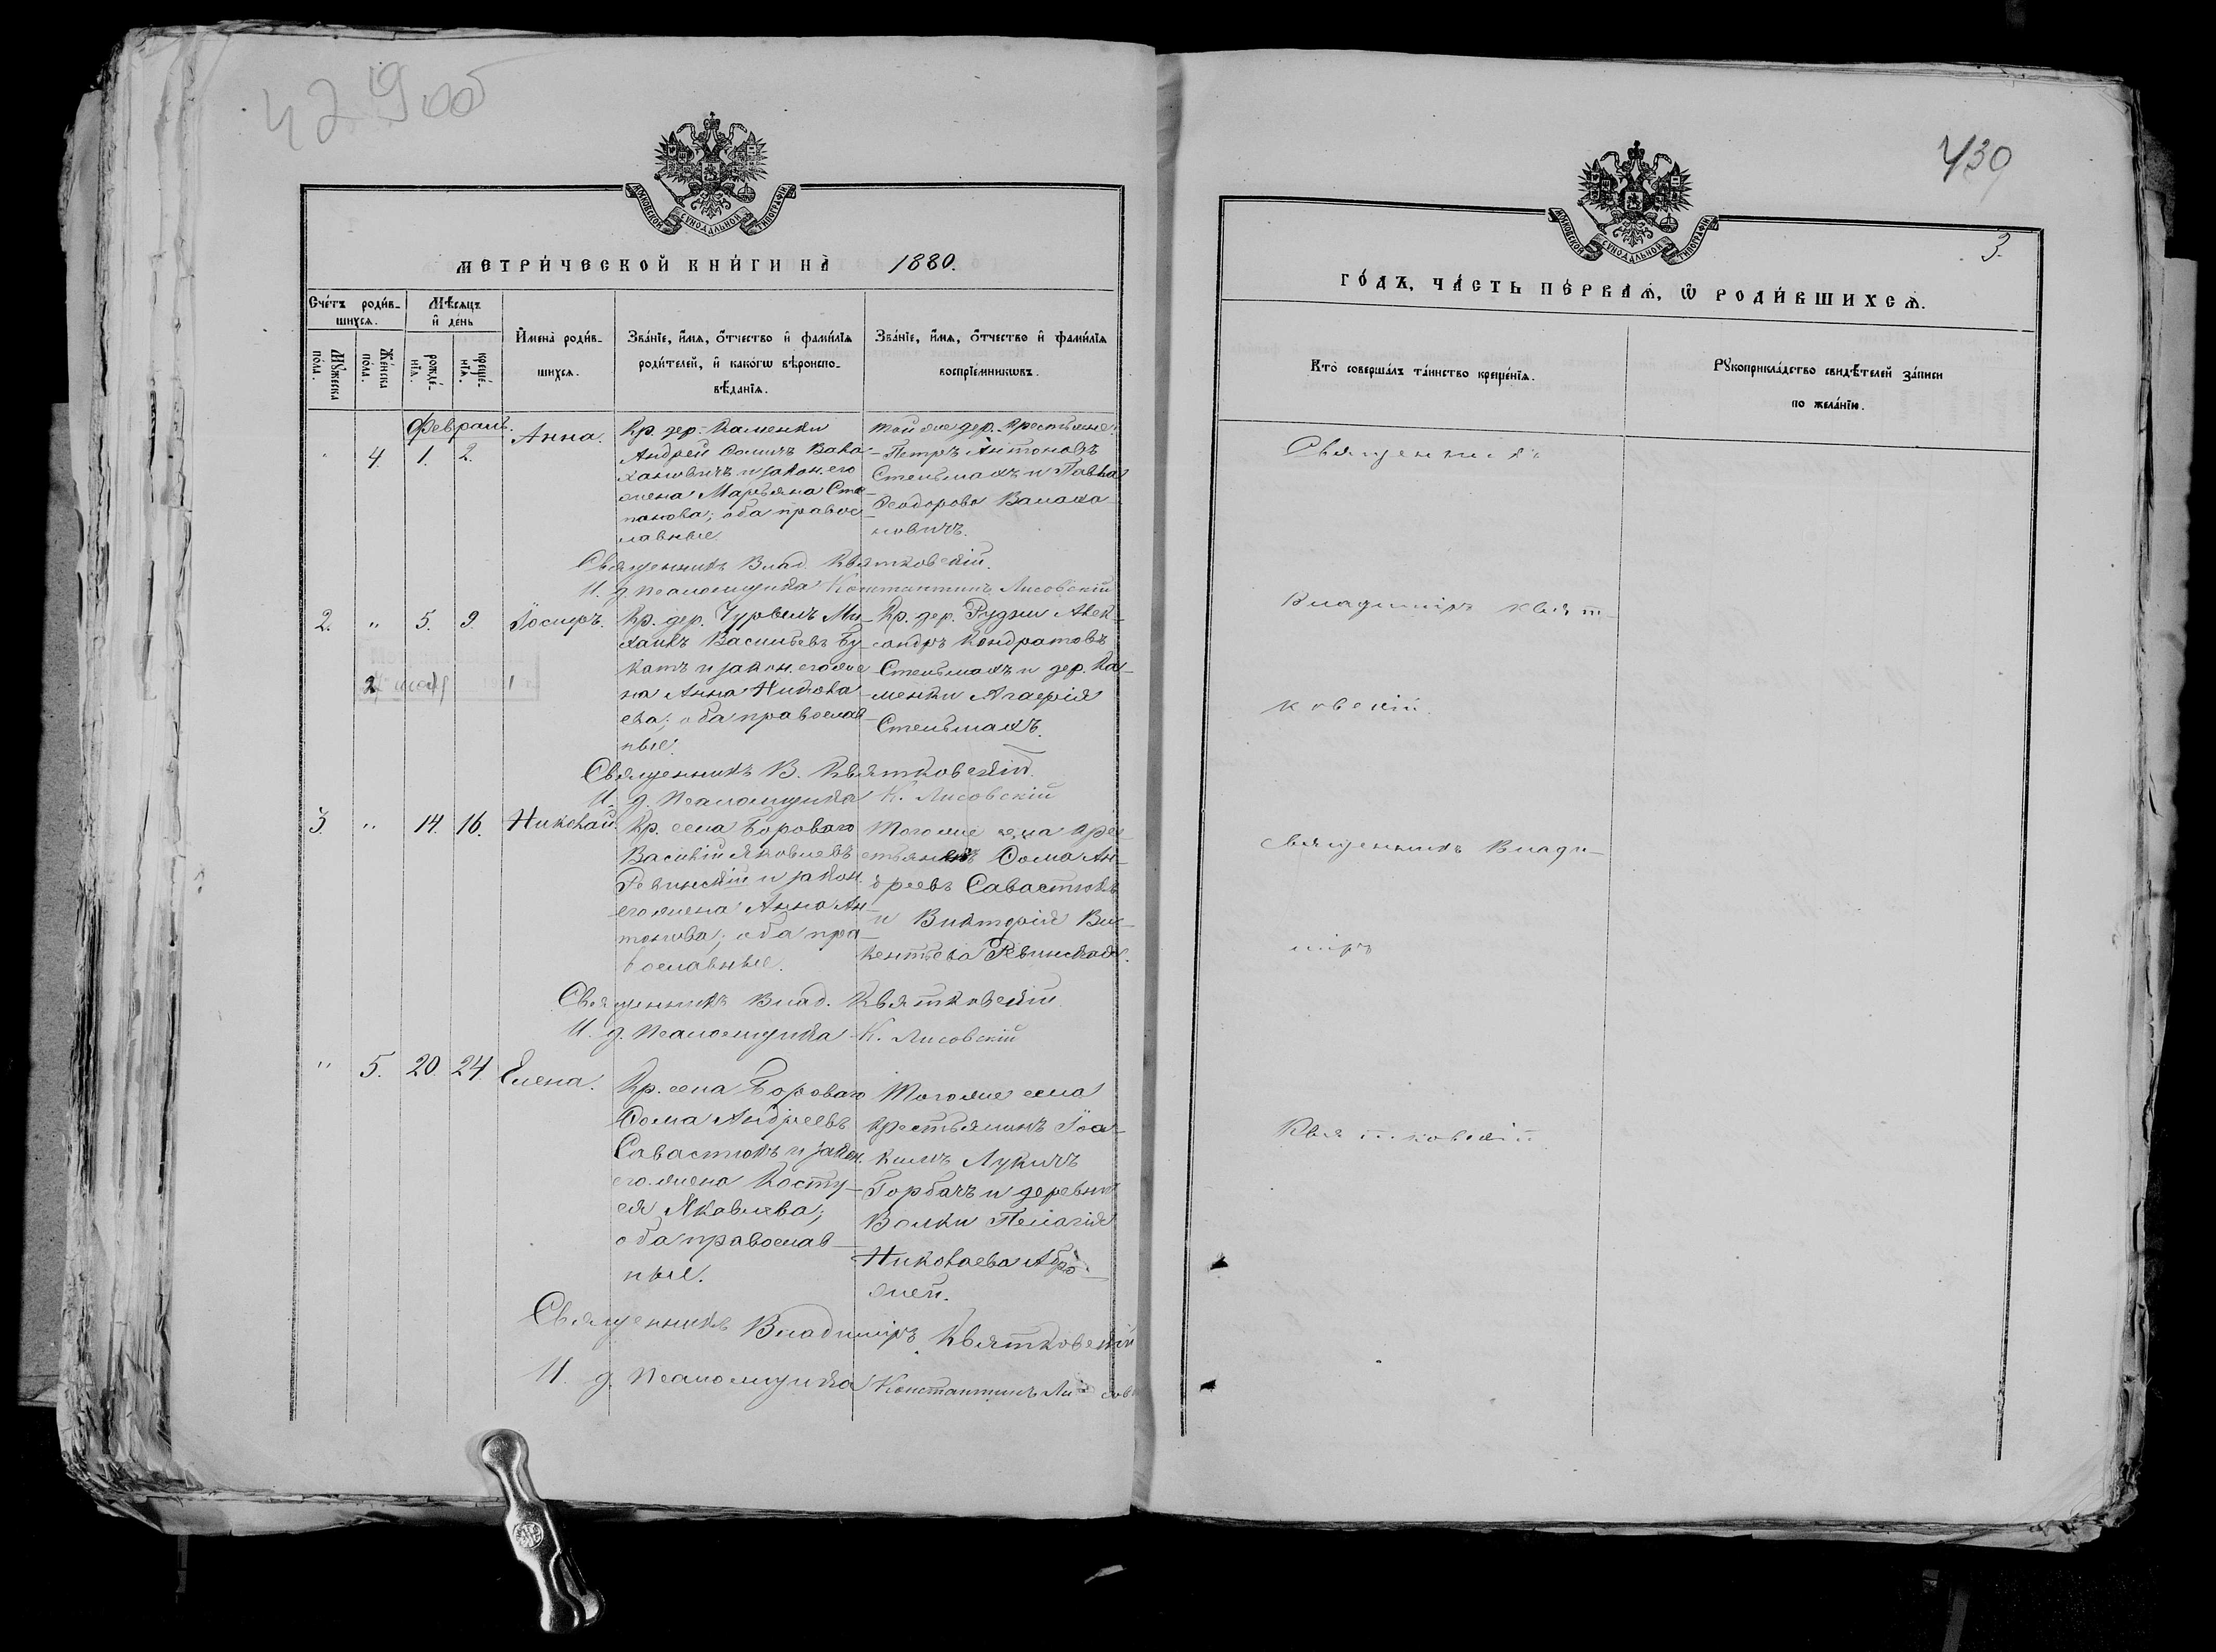 429 об
МОСКОВСКОЙ СѴНОДАЛЬНОЙ ТИПОГРАФІИ
МЕТРИ́ЧЕСКОЙ КНИ́ГИ НА̀ 1880.
Сче́тъ роди́в-
шихсѧ.
Мѣ́сѧцъ
и҆ де́нь
Мꙋ́жеска
по́ла.
Же́нска
по́ла.
рожде́-
нїѧ.
креще́-
нїѧ.
И҆мена̀ роди́в-
шихсѧ.
Зва́нїе, и҆́мѧ, ѻ҆́тчество и҆ фами́лїѧ
роди́телей, и҆ како́гѡ вѣроиспо-
вѣ́данїѧ.
Зва́нїе, и҆́мѧ, ѻ҆́тчество и҆ фами́лїѧ
воспрїе́мникѡвъ.
Февраль.
" 4. 1. 2. Анна.
Кр. дер. Каменки
Андрей Ѳомичъ Вала-
хановичъ и закон. его
жена Марьяна Сте-
панова; оба правос-
лавные.
Той же дер. крестьяне:
Петръ Антоновъ
Стельмахъ и Павла
Ѳеодорова Валаха-
новичъ.
Священникъ Влад. Квятковскій.
И. д. псаломщика Константинъ Лисовскій
2. " 5. 9. Іосифъ.
Кр. дер. Чурвылъ Ми-
хаилъ Васильевъ Бу-
катъ и закон. его же-
на Анна Никола-
ева; оба православ-
ные.
Кр. дер. Рудзи Алек-
сандръ Кондратовъ
Стельмахъ и дер. Ка-
менки Агафія
Стельмахъ.
Священникъ В. Квятковскій.
И. д. псаломщика К. Лисовскій
3. " 14. 16. Николай.
Кр. села Бороваго
Василій Яковлевъ
Ревинскій и закон.
его жена Анна Ан-
тонова; оба пра-
вославные.
Того же села крес-
стьянинъ Ѳома Ан-
дреевъ Савастюкъ
и Викторія Ви-
кентьева Ревинская.
Священникъ Влад. Квятковскій.
И. д. псаломщика К. Лисовскій
" 5. 20. 24. Елена.
Кр. села Бороваго
Ѳома Андреевъ
Савастюкъ и закон.
его жена Косту-
ся Яковлева;
оба православ-
ные.
Того же села
крестьянинъ Іоа-
кимъ Лукичъ
Горбачъ и деревни
Волки Пелагія
Николаева
Священникъ Владиміръ Квятковскій
И. д. псаломщика Константинъ Лисов
430
МОСКОВСКОЙ СѴНОДАЛЬНОЙ ТИПОГРАФІИ
3.
ГО́ДЪ, ЧА́СТЬ ПЕ́РВАѦ, Ѡ҆ РОДИ́ВШИХСѦ.
Кто̀ соверша́лъ та́инство креще́нїѧ.
Рꙋкоприкла́дство свидѣ́телей за́писи
по жела́нїю.
Священникъ
Владиміръ Квят-
ковскій.
Священникъ Влади-
міръ
Квятковскій